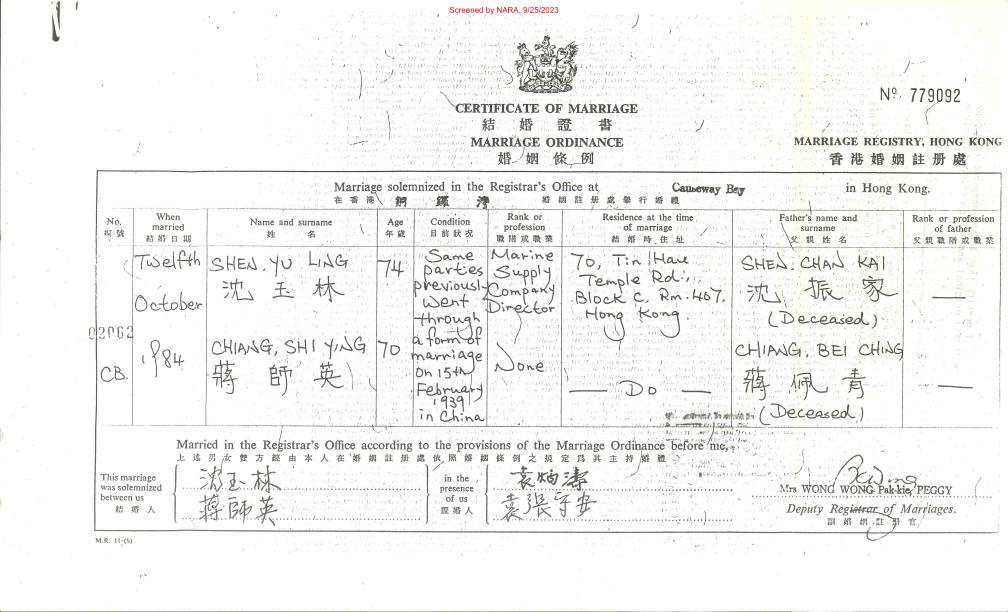 Screened by NARA, 9/25/2023
Nº 779092
CERTIFICATE OF MARRIAGE
結婚證書
MARRIAGE ORDINANCE
婚姻條例
MARRIAGE REGISTRY, HONG KONG
香港婚姻註册處
Marriage solemnized in the Registrar's Office at Causeway Bay in Hong Kong.
在香港 銅鑼灣 婚姻註册處舉行婚禮
No. 編號
When married 結婚日期
Name and surname 姓名
Age 年歲
Condition 目前狀況
Rank or profession 職階或職業
Residence at the time of marriage 結婚時住址
Father's name and surname 父親姓名
Rank or profession of father 父親職階或職業
02062
CB.
Twelfth
October
1984
SHEN, YU LING
沈玉林
74
Same
parties
previously
went
through
a form of
marriage
on 15th
February
1939
in China
Marine
Supply
Company
Director
70, Tin Hau
Temple Rd.,
Block C, Rm. 407,
Hong Kong.
SHEN, CHAN KAI
沈振家
(Deceased)
—
CHIANG, SHI YING
蔣師英
70
None
— Do —
CHIANG, BEI CHING
蔣佩青
(Deceased)
—
Married in the Registrar's Office according to the provisions of the Marriage Ordinance before me,
上述男女雙方經由本人在婚姻註册處依照婚姻條例之規定為其主持婚禮
This marriage was solemnized between us 結婚人
沈玉林
蔣師英
in the presence of us 證婚人
袁炳濤
袁張守安
Mrs WONG WONG Pak-kie, PEGGY
Deputy Registrar of Marriages.
副婚姻註册官
M.R. 11 (S)